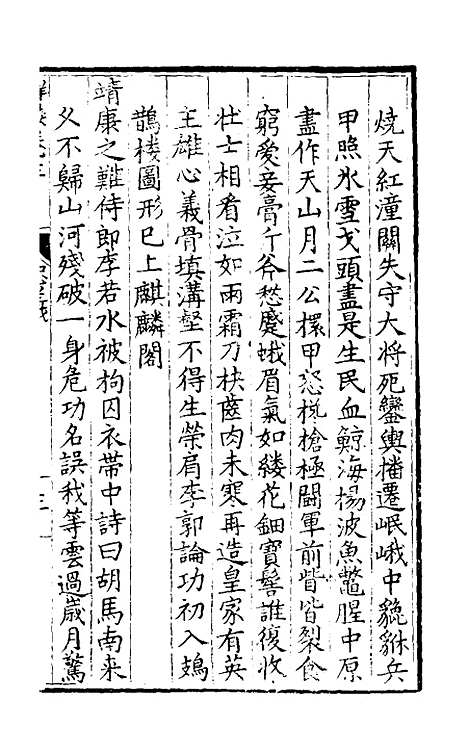 燒天紅潼關失守大将死鑾輿播遷岷峨中貔貅兵
甲照氷雪戈頭盡是生民血鯨海揚波魚鱉腥中原
盡作天山月二公擐甲恣梲槍極鬪軍前眥皆裂食
窮愛妾膏斤斧愁蹙蛾眉氣如縷花鈿寶髻誰復收
壮士相看泣如雨霜刀抉齒肉未寒再造皇家有英
主雄心義骨填溝壑不得生榮肩李郭論功初入鳷
鵲楼圖形已上麒麟閣
靖康之難侍郎李若水被拘囚衣帶中詩曰胡馬南来
久不歸山河殘破一身危功名誤我等雲過歲月驚